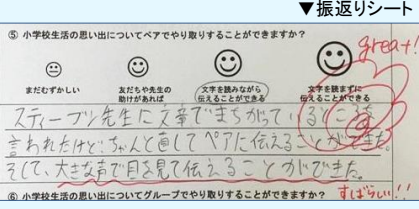 ▼振返りシート
⑤ 小学校生活の思い出についてペアでやり取りすることができますか？
great!
まだむずかしい
友だちや先生の
助けがあれば
文字を読みながら
伝えることができる
文字を読まずに
伝えることができる
スティーブン先生に文章でまちがっているところを
言われたけど、ちゃんと直してペアに伝えることができた。
そして、大きな声で目を見て伝えることができた。
⑥ 小学校生活の思い出についてグループでやり取りすることができますか？
すばらしい!!